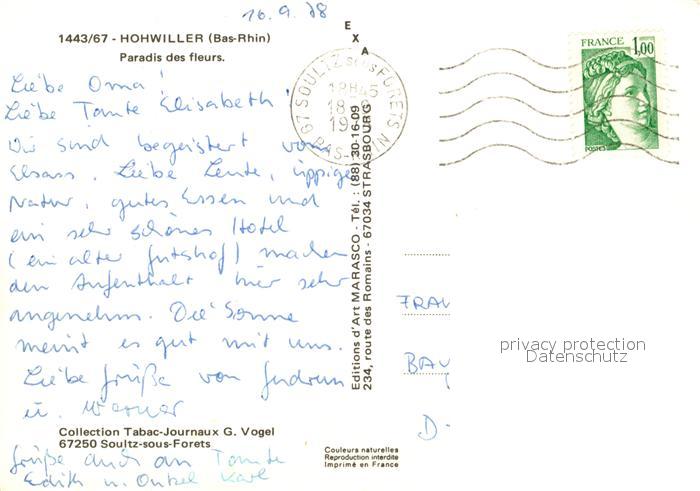 16.9.78
1443/67 - HOHWILLER (Bas-Rhin)
Paradis des fleurs.
Liebe Oma!
Liebe Tante Elisabeth!
Wir sind begeistert vom
Elsass. Liebe Leute, üppige
Natur, gutes Essen und
ein sehr schönes Hotel
(ein alter Gutshof) machen
den Aufenthalt hier sehr
angenehm. Die Sonne
meint es gut mit uns.
Liebe Grüße von Gudrun
u. Werner
Collection Tabac-Journaux G. Vogel
67250 Soultz-sous-Forets
Grüße auch an Tante
Edith u. Onkel Karl
EXA
Editions d'Art MARASCO - Tél. : (88) 30-16-09
234, route des Romains - 67034 STRASBOURG
Couleurs naturelles
Reproduction interdite
Imprimé en France
67 SOULTZ SOUS FORETS
18H45
18
19
BAS-RHIN
FRANCE 1,00
POSTES
FRAU
BAU
D-
privacy protection
Datenschutz